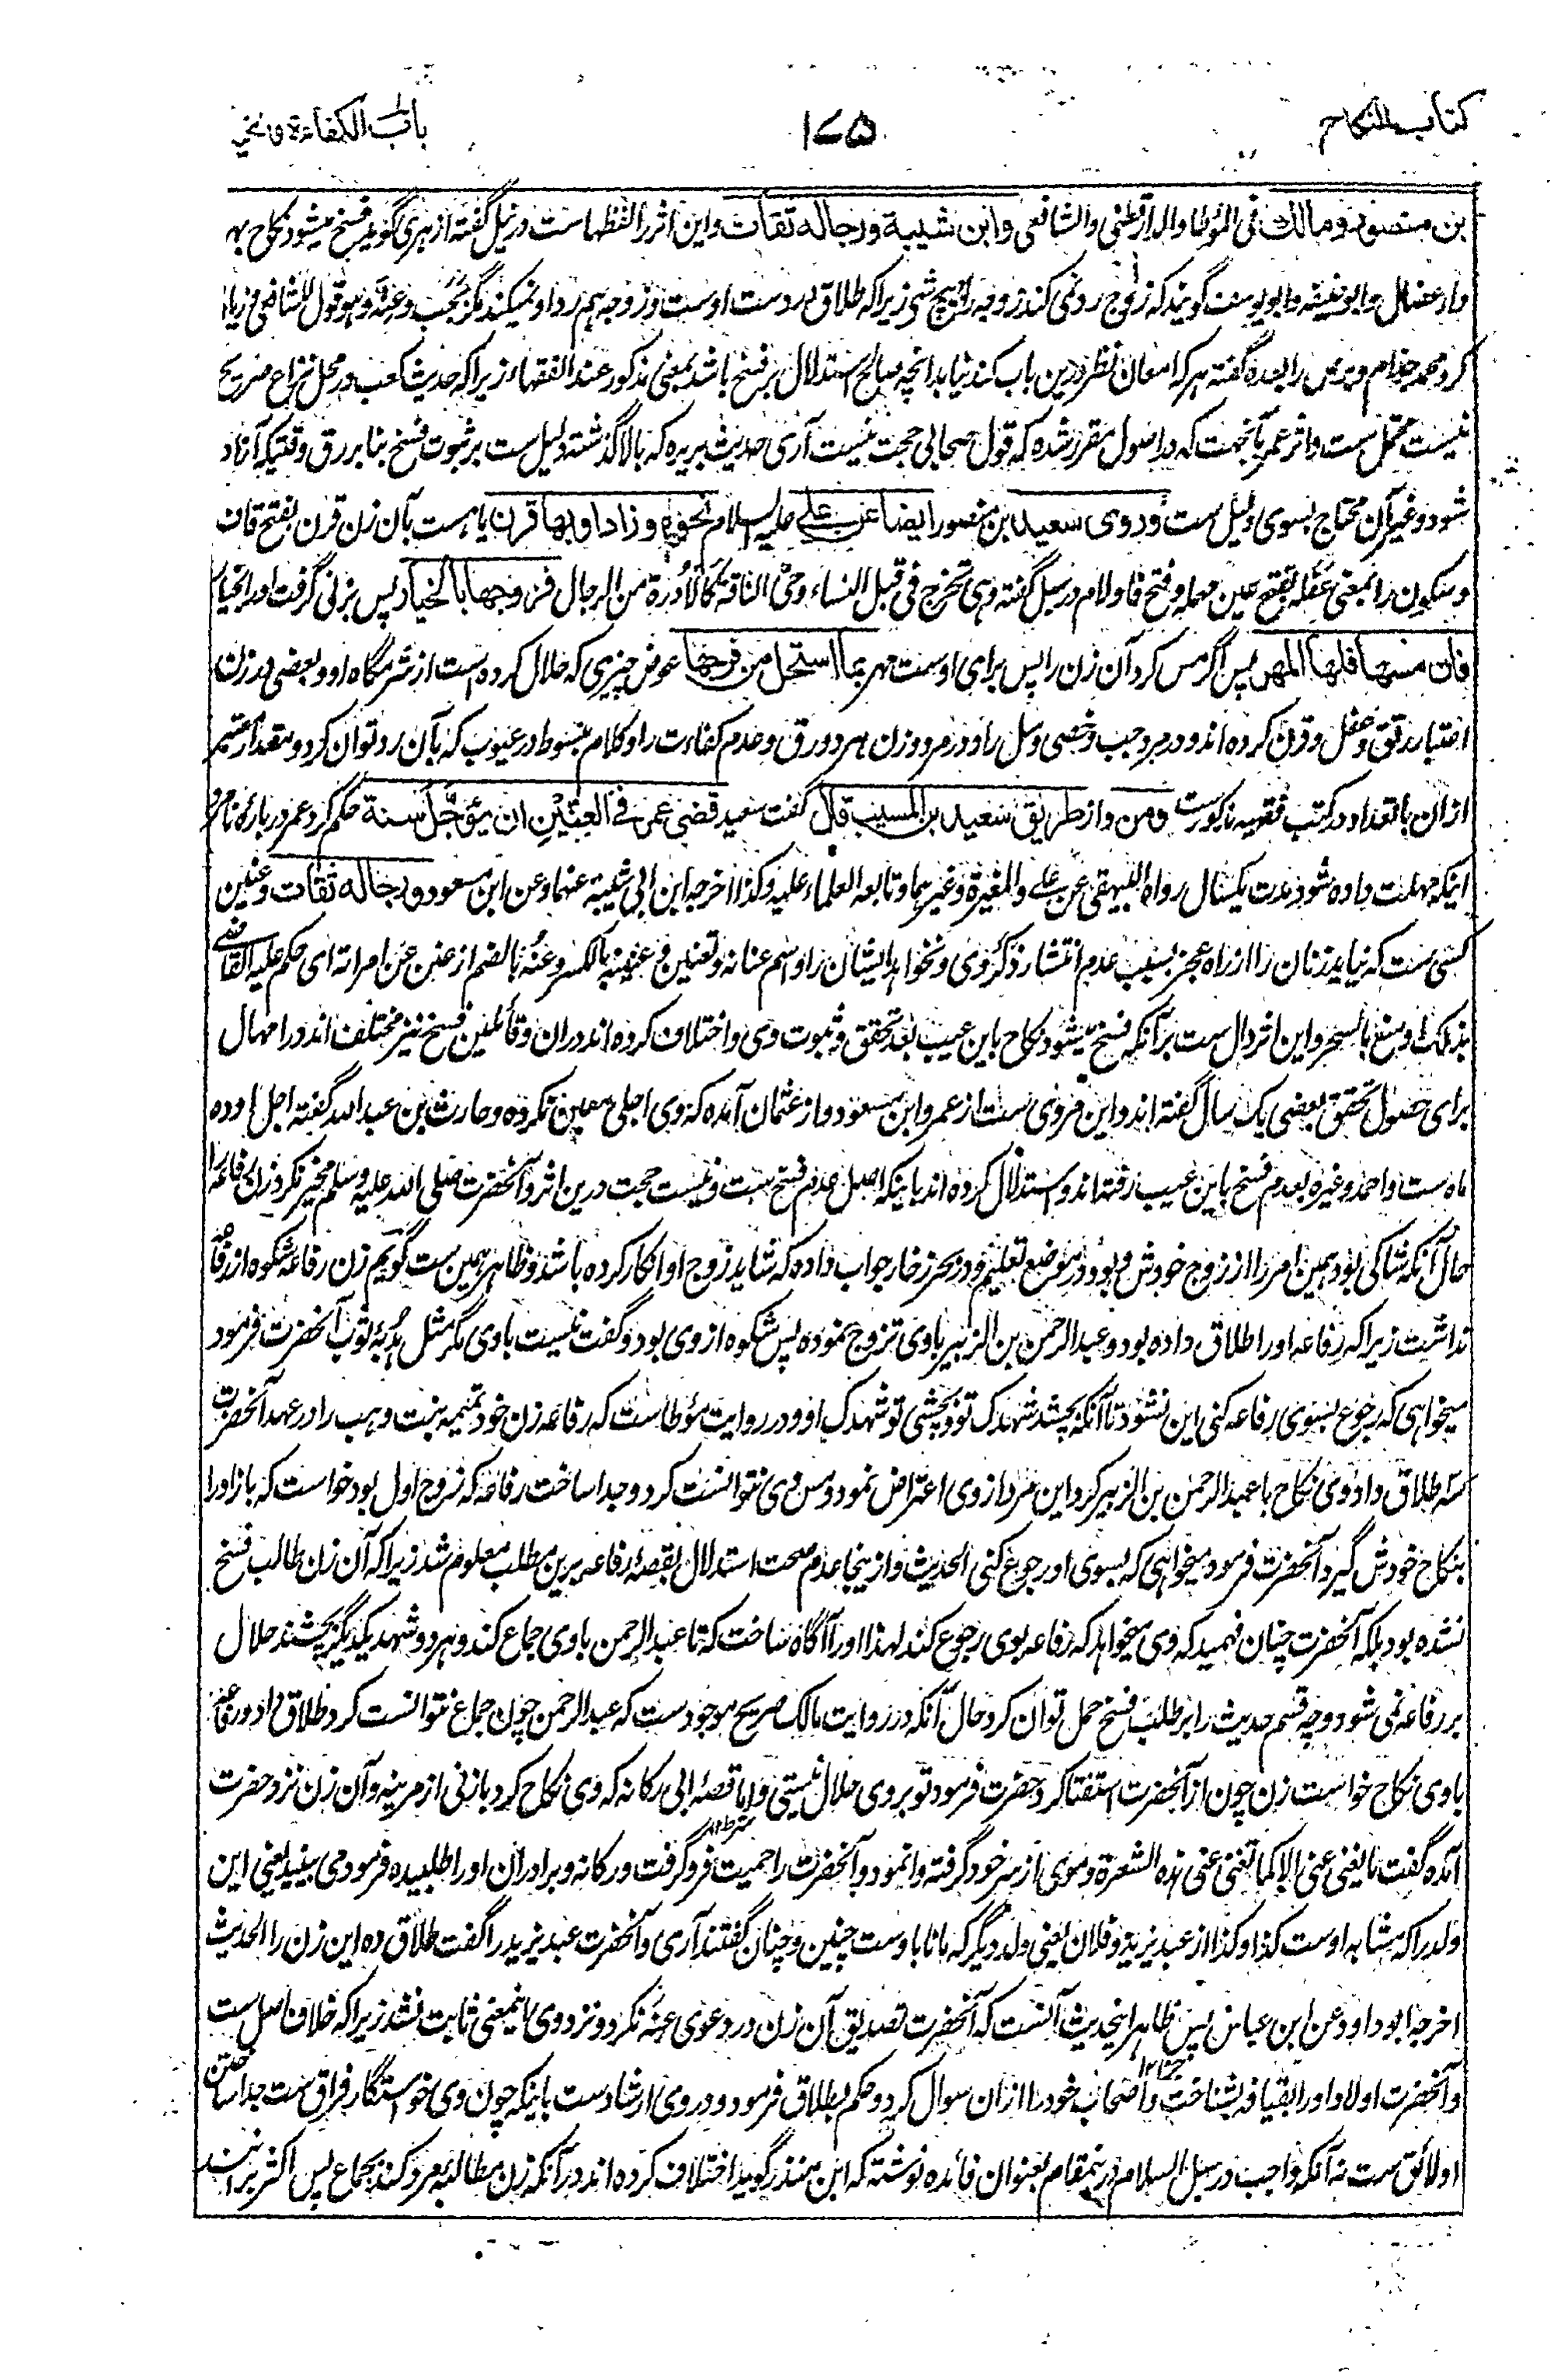 کتاب النکاح
۱۷۵
باب الکفاءة و
بن منصور ومالك فی المؤطا والدارقطنی والشافعی وابن شیبة ورجاله ثقات واین اثر را لفظهاست در نیل گفته از هری گوید فسخ میشود نکاح بهر
وابو حنیفه وابو یوسف گویند که زوج رد نمی کند زوجه را بهیچ شی زیرا که طلاق در دست اوست و زوجه هم رد او نمیکند مگر بجب وعنة وهو قول للشافعی وزیاد
کرد محمد جذام وبرص را بعده گفته هر که امعان نظر درین باب کند نیابد انچه صالح استدلال بر فسخ باشد بمعنی مذکور عند الفقهاء زیرا که حدیث کعب در محل نزاع صریح
نیست محتمل ست واثر عمر بآنجهت که در اصول مقرر شده که قول صحابی حجت نیست آری حدیث بریره که بالا گذشته دلیل ست بر ثبوت فسخ بنا بر رق وقتیکه آزاد
شود وغیر آن محتاج بسوی دلیل ست وروی سعید بن منصور ایضا عن علی علیه السلام نحوه وزاد او بها قرن یا هست بآن زن قرن بفتح قاف
وسکون را بمعنی عفله بفتح عین مهمله وفتح فا ولام در سبل گفته وهی تخرج فی قبل النساء وحی الناقة کالادرة من الرجال فزوجها بالخیار پس بزنی گرفت او را بخیار
فان مسها فلها المهر پس اگر مس کرد آن زن را پس برای اوست مهر بما استحل من فرجها عوض چیزی که حلال کرده است از شرمگاه او وبعضی در زن
اعتبار رتق وعفل وقرن کرده اند ودر مرد جب وخصی وسل را ودر مرد وزن هر دو رق وعدم کفاءت را وکلام مبسوط در عیوب که بآن رد توان کرد ومقدار معتبر
ازان با تعداد در کتب فقهیه مذکورست ومن واز طریق سعید بن المسیب قال گفت سعید قضی عمر فی العنین ان یؤجل سنة حکم کرد عمر درباره نامرد
اینکه مهلت داده شود مدت یکسال رواه البیهقی عن علی والمغیرة وغیرهما وتابعه العلماء علیه وکذا اخرجه ابن ابی شیبة عنهما وعن ابن مسعود ورجاله ثقات وعنین
کسی ست که نیاید زنان را از راه عجز بسبب عدم انتشار ذکر وی ونخواهد ایشان را واسم عنانه وتعنین وعنینه بالکسر وعنه بالضم از عنن عن امراته ای حکم علیه القاضی
بذلک او منع بالسحر واین اثر دال ست بر آنکه فسخ میشود نکاح باین عیب بعد تحقق وثبوت وی واختلاف کرده اند دران وقائلین فسخ نیز مختلف اند در امهال
برای حصول تحقق بعضی یک سال گفته اند واین مروی ست از عمر وابن مسعود واز عثمان آمده که وی اجلی معین نکرده وحارث بن عبدالله گفته اجل او ده
ماه ست واحمد وغیره بعدم فسخ باین عیب رفته اند واستدلال کرده اند باینکه اصل عدم فسخ ست ونیست حجت درین اثر وآنحضرت صلی الله علیه وسلم مخیر نکرد زن رفاعه را
حال آنکه شاکی بود همین امر را از زوج خودش وبود در موضع تعلیم ودر بحر زخار جواب داده که شاید زوج او انکار کرده باشد وظاهر همین ست گویم زن رفاعه شکوه از رفاعه
نداشت زیرا که رفاعه او را طلاق داده بود وعبد الرحمن بن الزبیر با وی تزوج نموده پس شکوه از وی بود وگفت نیست با وی مگر مثل هدبه ثوب آنحضرت فرمود
میخواهی که رجوع بسوی رفاعه کنی این نشود تا آنکه بچشد شهدک تو وبچشی تو شهدک او ودر روایت مؤطاست که رفاعه زن خود تمیمه بنت وهب را در عهد آنحضرت
سه طلاق داد وی نکاح با عبد الرحمن بن الزبیر کرد این مرد از وی اعتراض نمود ومس وی نتوانست کرد وجدا ساخت رفاعه که زوج اول بود خواست که باز او را
بنکاح خودش گیرد آنحضرت فرمود میخواهی که بسوی او رجوع کنی الحدیث وازینجا عدم صحت استدلال بقصه رفاعه برین مطلب معلوم شد زیرا که آن زن طالب فسخ
نشده بود بلکه آنحضرت چنان فهمید که وی میخواهد که رفاعه بوی رجوع کند لهذا او را آگاه ساخت که تا عبد الرحمن با وی جماع کند وهر دو شهد یکدیگر بچشند حلال
بر رفاعه نمی شود وچه قسم حدیث را بر طلب فسخ حمل توان کرد حال آنکه در روایت مالک صریح موجودست که عبد الرحمن چون جماع نتوانست کرد طلاق داد ورفاعه
با وی نکاح خواست زن چون از آنحضرت استفتا کرد حضرت فرمود تو بر وی حلال نیستی واما قصه ابی رکانه که وی نکاح کرد با زنی از مزینه وآن زن نزد حضرت
آمده گفت ما یغنی عنی الا کما تغنی عنی هذه الشعرة وموی از سر خود گرفته وانمود وآنحضرت را حمیت فرو گرفت ورکانه وبرادران او را طلبیده فرمود می بینید یعنی این
ولد را که مشابه اوست کذا وکذا از عبد یزید وفلان یعنی ولد دیگر که مانا باوست چنین وچنان گفتند آری وآنحضرت عبد یزید را گفت طلاق ده این زن را الحدیث
اخرجه ابو داود عن ابن عباس پس ظاهر اینحدیث آنست که آنحضرت تصدیق آن زن در دعوی عنه نکرد ونزد وی اینمعنی ثابت نشد زیرا که خلاف اصل ست
وآنحضرت اولاد او را بقیافه بشناخت واصحاب خود را ازان سوال کرد وحکم بطلاق فرمود ودر وی ارشادست باینکه چون وی خواستگار فراق ست جدا ساختن
او لائق ست نه آنکه واجب در سبل السلام درینمقام بعنوان فائده نوشته که ابن منذر گوید اختلاف کرده اند در آنکه زن مطالبه مرد کند بجماع پس اکثر برانند